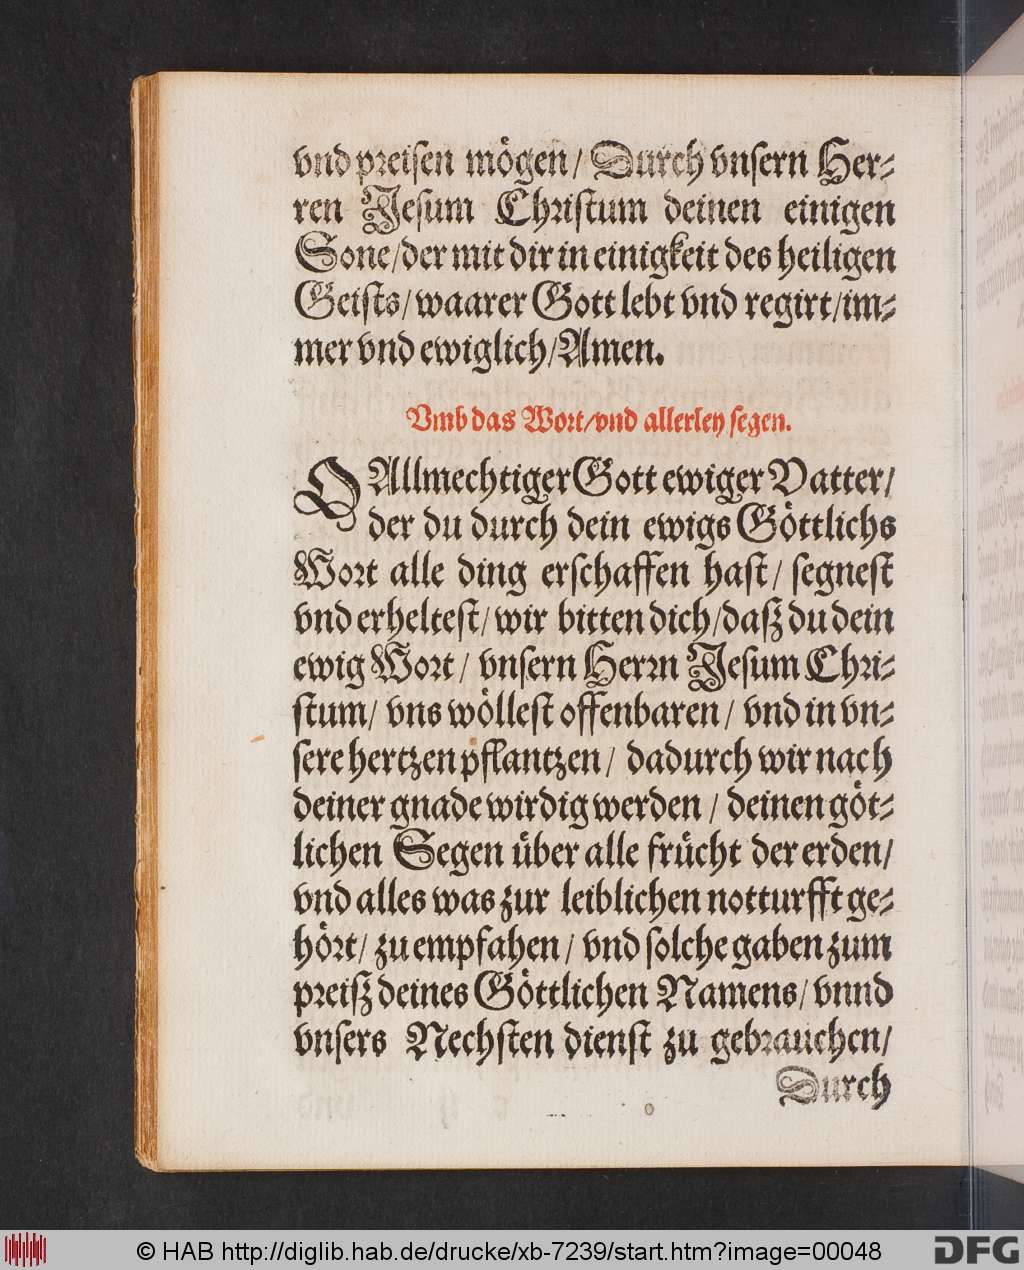 vnd preisen mögen/ Durch vnsern Her⸗
ren Jesum Christum deinen einigen
Sone/der mit dir in einigkeit des heiligen
Geists/waarer Gott lebt vnd regirt/im⸗
mer vnd ewiglich/Amen.
Vmb das Wort/vnd allerley segen.
O Allmechtiger Gott ewiger Vatter/
der du durch dein ewigs Göttlichs
Wort alle ding erschaffen hast/ segnest
vnd erheltest/wir bitten dich/daß du dein
ewig Wort/ vnsern Herrn Jesum Chri⸗
stum/ vns wöllest offenbaren/ vnd in vn⸗
sere hertzen pflantzen/ dadurch wir nach
deiner gnade wirdig werden/ deinen göt⸗
lichen Segen über alle frücht der erden/
vnd alles was zur leiblichen notturfft ge⸗
hört/ zu empfahen/ vnd solche gaben zum
preiß deines Göttlichen Namens/ vnnd
vnsers Nechsten dienst zu gebrauchen/
Durch
© HAB http://diglib.hab.de/drucke/xb-7239/start.htm?image=00048
DFG